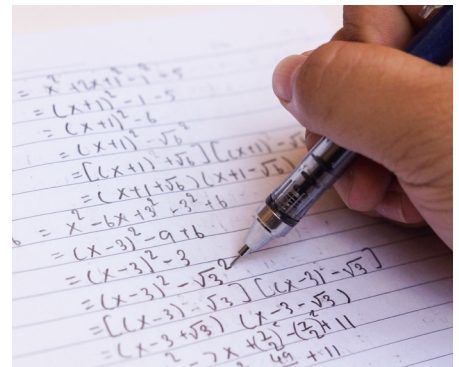 = x² + 2x + 1² - 1² - 5
= (x+1)² - 1 - 5
= (x+1)² - 6
= (x+1)² - √6²
= [(x+1) + √6] [(x+1) - √
= (x+1+√6) (x+1-√6)
6 = x² - 6x + 3² - 3² + 6
= (x-3)² - 9 + 6
= (x-3)² - 3
= (x-3)² - √3²
= [(x-3) + √3] [(x-3) - √3]
= (x-3+√3) (x-3-√3)
² - 7x + (7/2)² - (7/2)² + 11
49 + 11